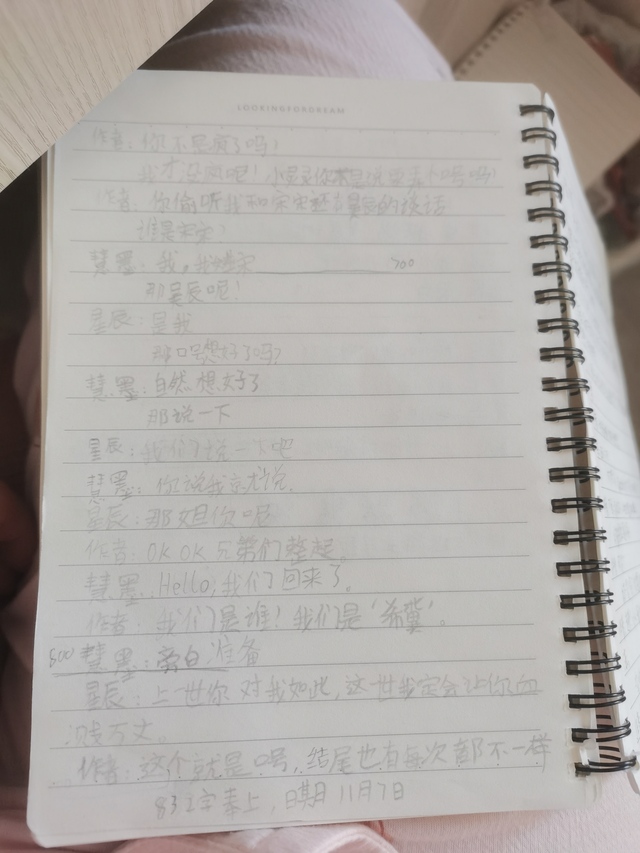 LOOKINGFORDREAM
作者：你不是疯了吗！
我才没疯呢！小星辰你不是说要弄个口号吗？
作者：你偷听我和宋宋的谈话
谁是宋宋？
慧墨：我，我 700
那星辰呢！
星辰：是我
那口号想好了吗？
慧墨：自然想好了
那说一下
星辰：我们说一下吧
慧墨：你说我就说。
星辰：那 你呢
作者：OK OK 兄弟们整起。
慧墨：Hello，我们回来了。
作者：我们是谁！我们是‘希冀’。
800 慧墨：旁白准备
星辰：上一世你对我如此，这一世我定会让你血
溅万丈。
作者：这个就是口号，结尾也有每次都不一样
832字奉上，日期11月7日